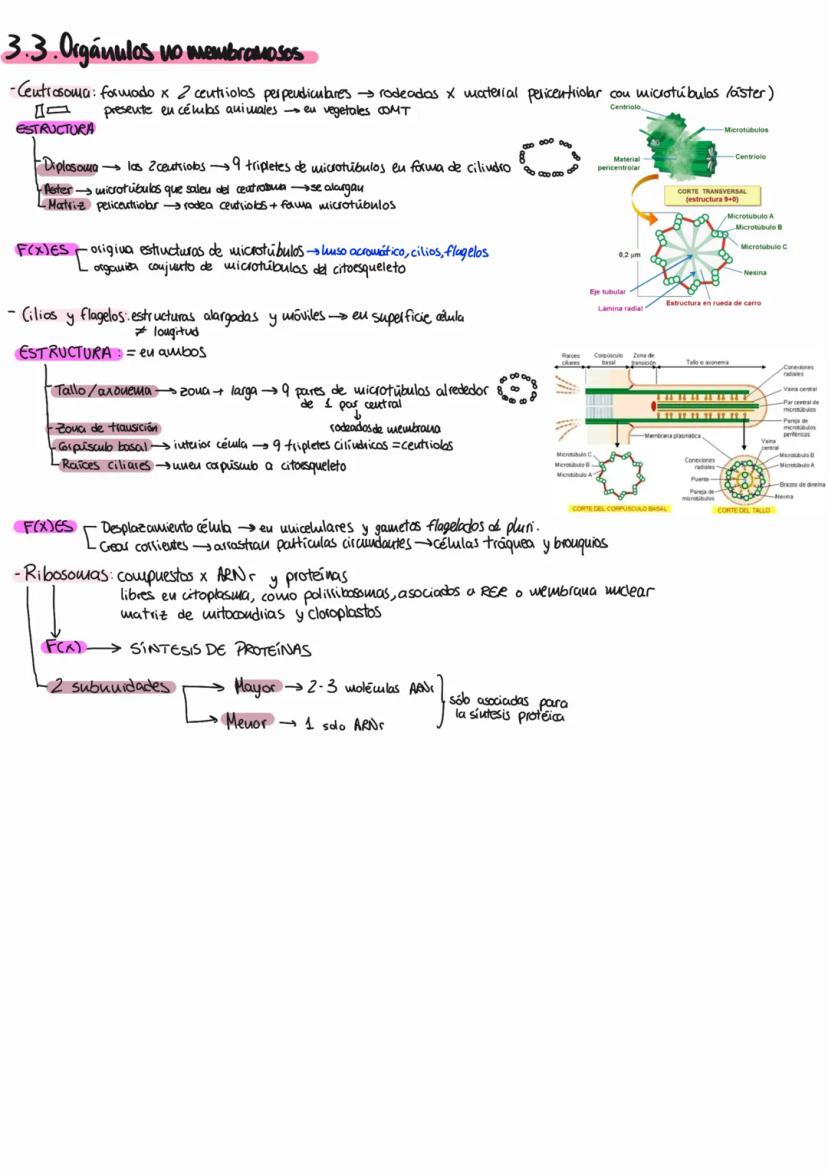 3.3. Orgánulos no membranosos
- Centrosoma: formado x 2 centriolos perpendiculares → rodeados x material pericentriolar con microtúbulos (áster)
presente en células animales → en vegetales COMT
ESTRUCTURA
Diplosoma → los 2 centriolos → 9 tripletes de microtúbulos en forma de cilindro
Áster → microtúbulos que salen del centrosoma → se alargan
Matriz pericentriolar → rodea centriolos + forma microtúbulos
F(X)ES
origina estructuras de microtúbulos → huso acromático, cilios, flagelos
organiza conjunto de microtúbulos del citoesqueleto
Centriolo
Microtúbulos
Centriolo
Material
pericentrolar
CORTE TRANSVERSAL
(estructura 9+0)
Microtúbulo A
Microtúbulo B
Microtúbulo C
0,2 µm
Nexina
Eje tubular
Lámina radial
Estructura en rueda de carro
- Cilios y flagelos: estructuras alargadas y móviles → en superficie célula
≠ longitud
ESTRUCTURA: = en ambos
Tallo/axonema → zona + larga → 9 pares de microtúbulos alrededor
de 1 par central
↓
rodeados de membrana
Zona de transición
Corpúsculo basal → interior célula → 9 tripletes cilíndricos = centriolos
Raíces ciliares → unen corpúsculo a citoesqueleto
Raíces
ciliares
Corpúsculo
basal
Zona de
transición
Tallo o axonema
Conexiones
radiales
Vaina central
Par central de
microtúbulos
Pareja de
microtúbulos
periféricos
Membrana plasmática
Microtúbulo C
Microtúbulo B
Microtúbulo A
Vaina
central
Conexiones
radiales
Puente
Pareja de
microtúbulos
Microtúbulo B
Microtúbulo A
Brazos de dineína
Nexina
CORTE DEL CORPÚSCULO BASAL
CORTE DEL TALLO
F(X)ES
Desplazamiento célula → en unicelulares y gametos flagelados de pluri.
Crear corrientes → arrastran partículas circundantes → células tráquea y bronquios
- Ribosomas: compuestos x ARNr y proteínas
libres en citoplasma, como polirribosomas, asociados a RER o membrana nuclear
matriz de mitocondrias y cloroplastos
F(X) → SÍNTESIS DE PROTEÍNAS
2 subunidades
→ Mayor → 2-3 moléculas ARNr
→ Menor → 1 solo ARNr
sólo asociadas para
la síntesis protéica